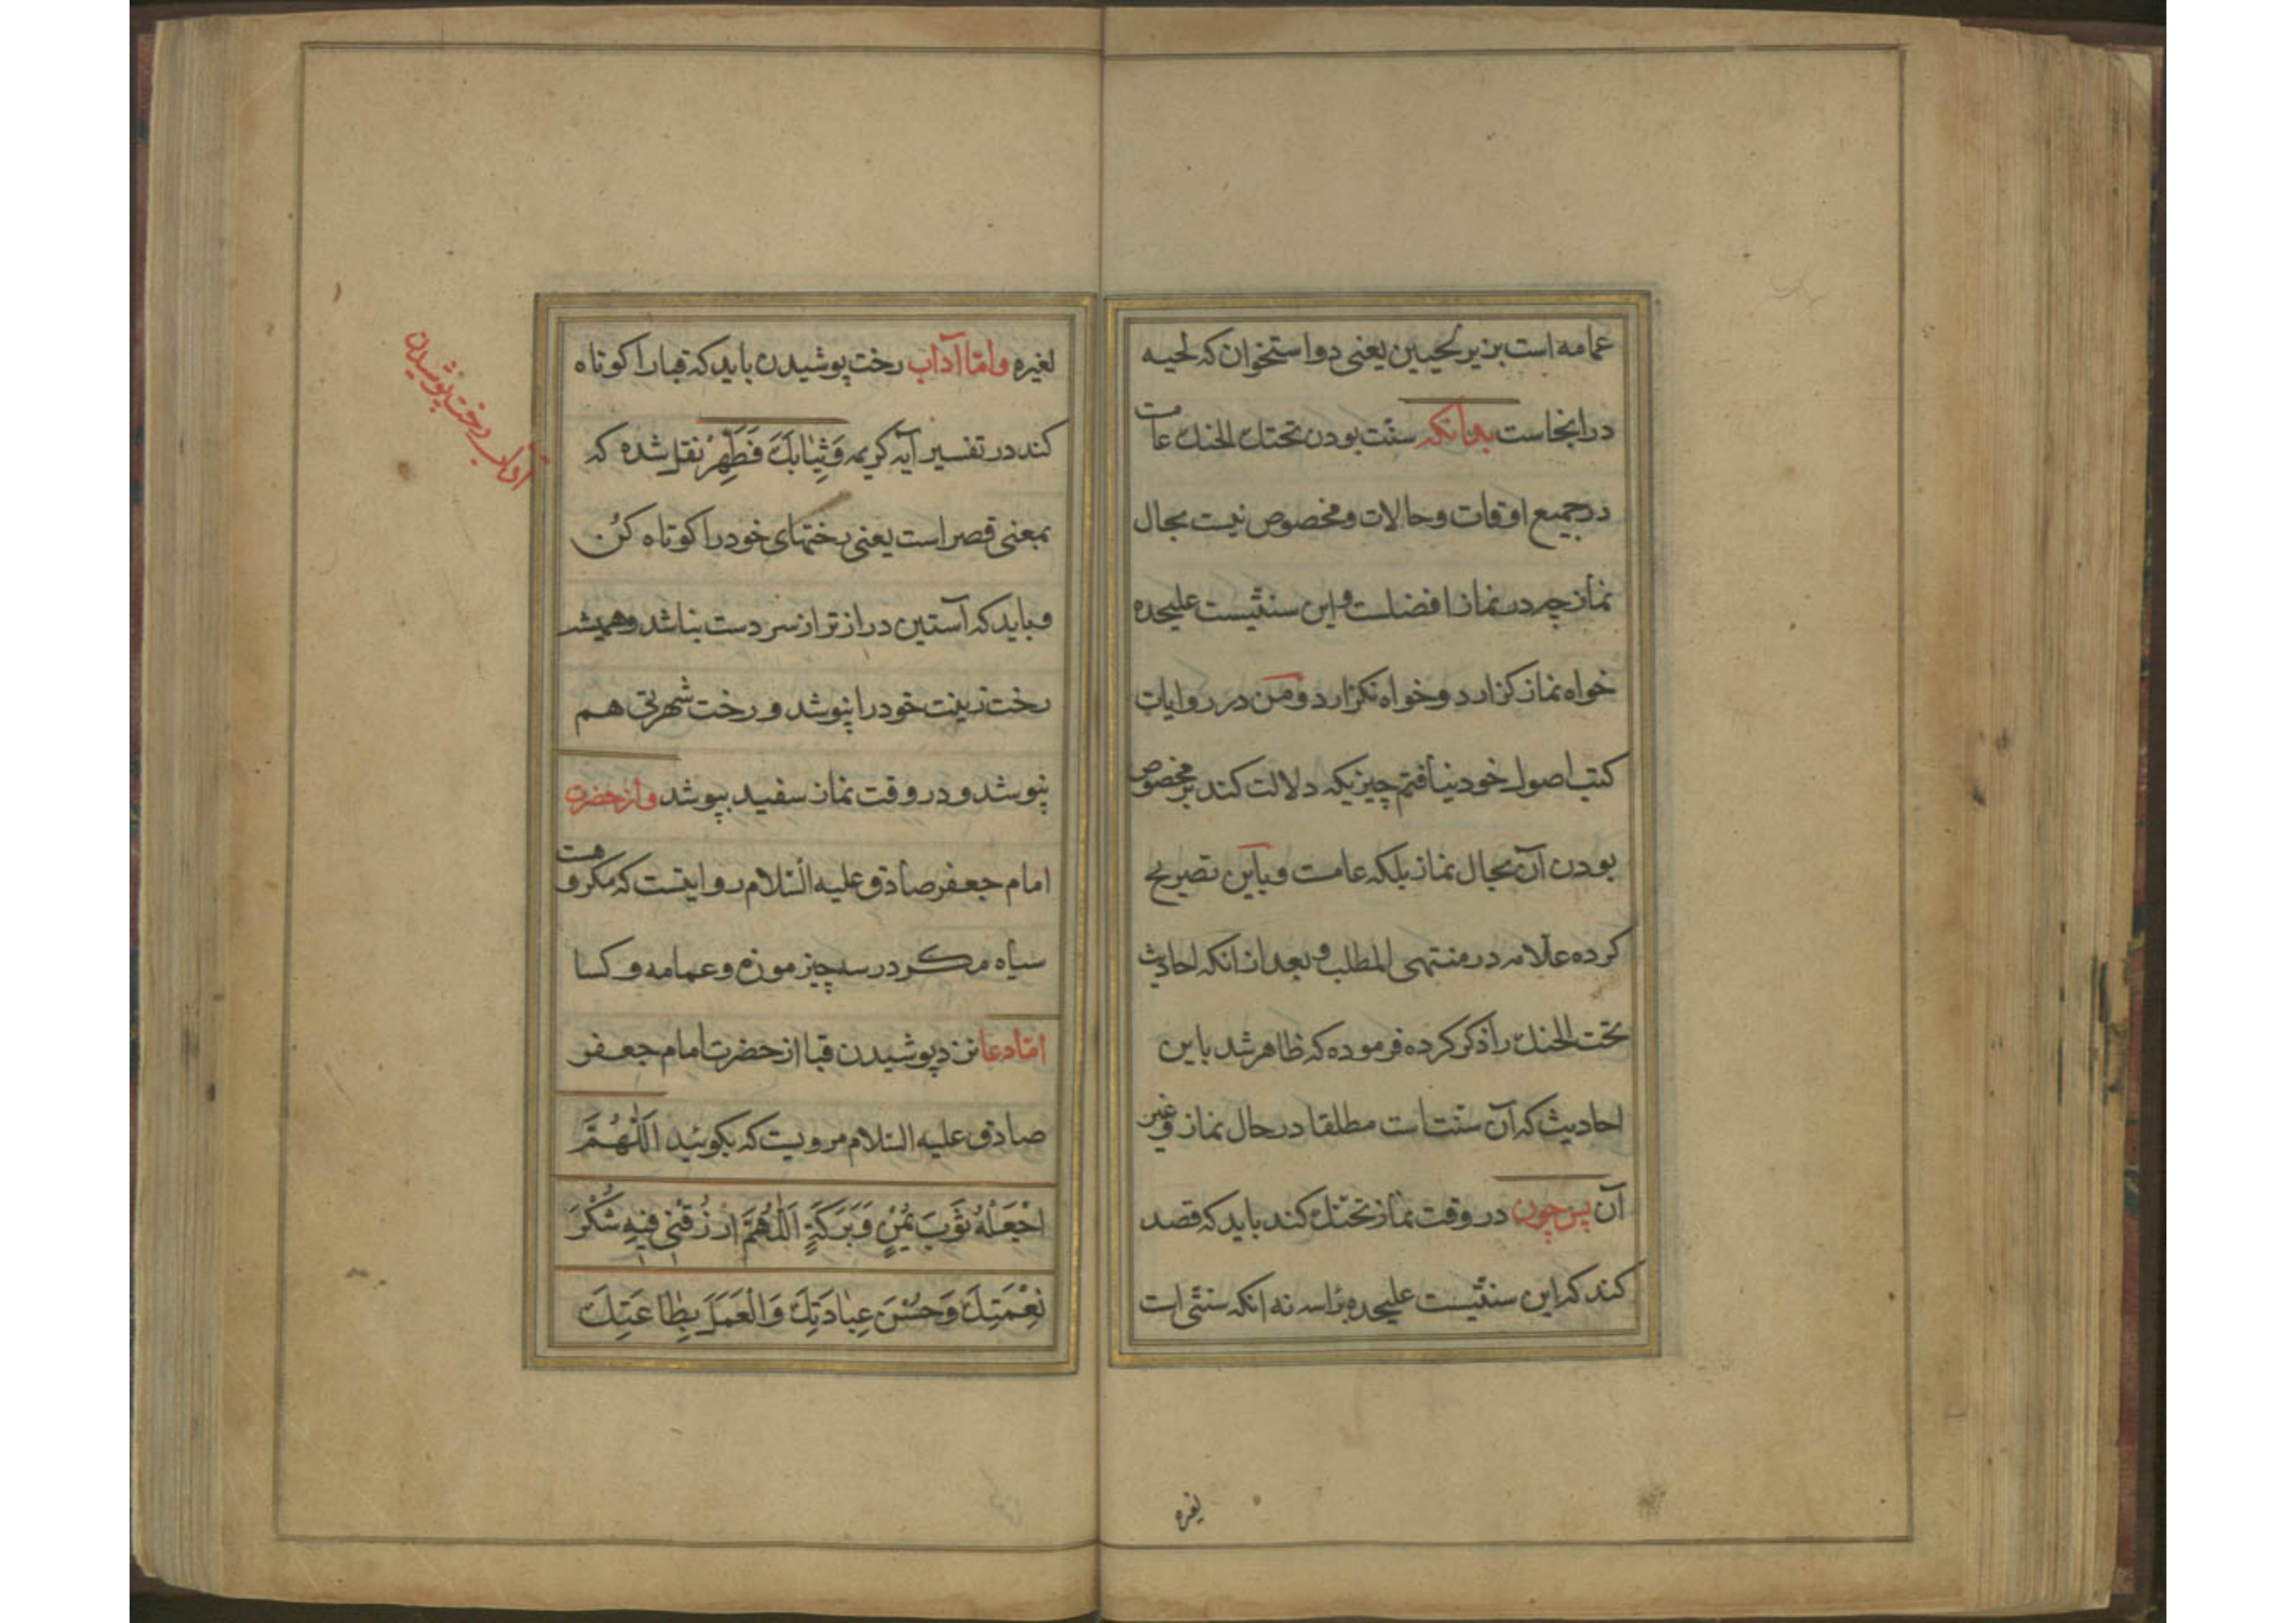 عمامه است بزیر لحیین یعنی دو استخوان که لحیه
در انجاست بدانکه سنّت بودن تحتك الحنك عامست
در جمیع اوقات و حالات و مخصوص نیست بحال
نماز چه در نماز افضلست و این سنتیست علیحده
خواه نماز کزارد و خواه نکزارد و من در روایات
کتب اصول خود نیافتم چیزیکه دلالت کند بر مخصوص
بودن آن بحال نماز بلکه عامست و باین تصریح
کرده علّامه در منتهی المطلب و بعد از انکه احادیث
تحت الحنك را ذکر کرده فرموده که ظاهر شد باین
احادیث که آن سنّت است مطلقا در حال نماز و غیر
آن پس چون در وقت نماز تحنّك کند باید که قصد
کند که این سنّتیست علیحده براسه نه انکه سنتّی است
لغیره
لغیره و امّا آداب رخت پوشیدن باید که قبا را کوتاه
کند در تفسیر آیه کریمه وَثِیٰابَكَ فَطَهِّرْ نقل شده که
بمعنی قصر است یعنی رختهای خود را کوتاه کُن
و باید که آستین دراز تر از سر دست نباشد و همیشه
رخت زینت خود را نپوشد و رخت شهرتی هم
نپوشد و در وقت نماز سفید بپوشد و از حضرت
امام جعفر صادق علیه السّلام روایتست که مکروهست
سیاه مکر در سه چیز موزه و عمامه و کسا
امّا دعا نزد پوشیدن قبا از حضرت امام جعفر
صادق علیه السّلام مرویست که بکوئید اَللّٰهُمَّ
اجْعَلْهُ ثَوْبَ یُمْنٍ وَبَرَکَةٍ اَللّٰهُمَّ ارْزُقْنِی فِیهِ شُکْرَ
نِعْمَتِكَ وَحُسْنَ عِبٰادَتِكَ وَالْعَمَلَ بِطٰاعَتِكَ
آداب رخت پوشیدن